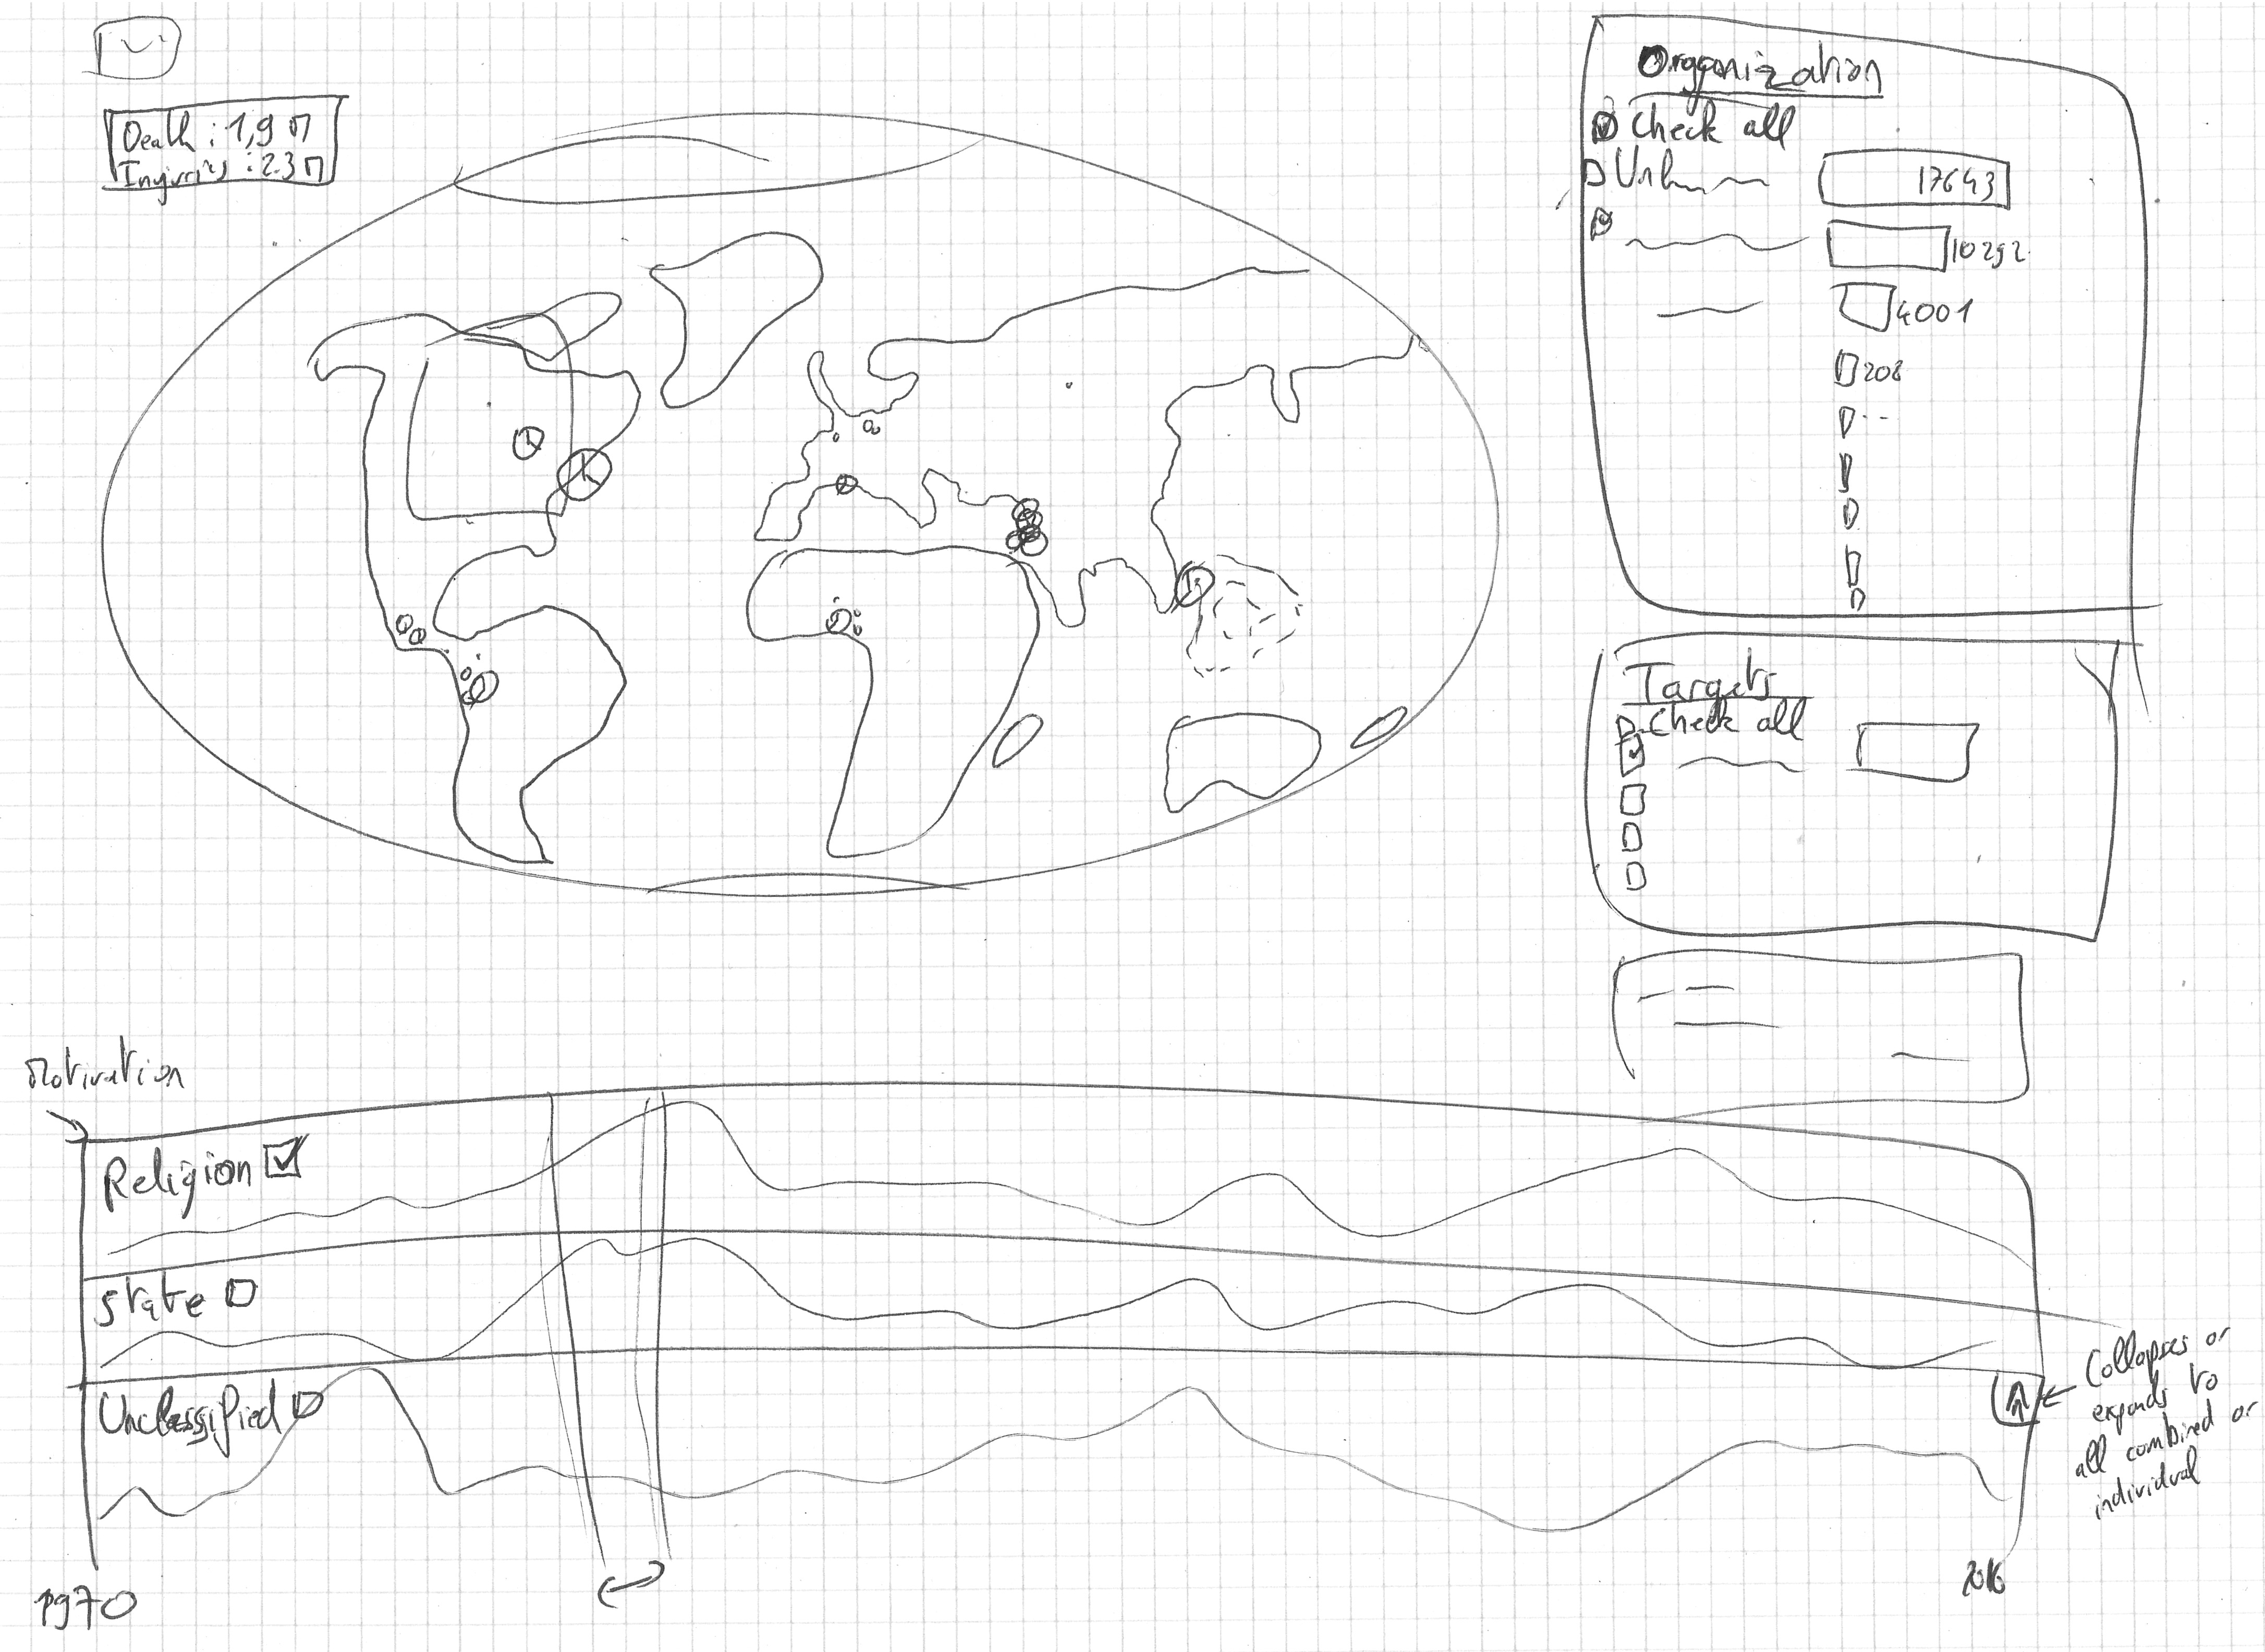 Death : 1,9 M
Injuries : 2.3 M
Organization
Check all
17643
10292
4001
208
Targets
Check all
Motivation
Religion
State
Unclassified
Collapses or
expands to
all combined or
individual
1970
2016